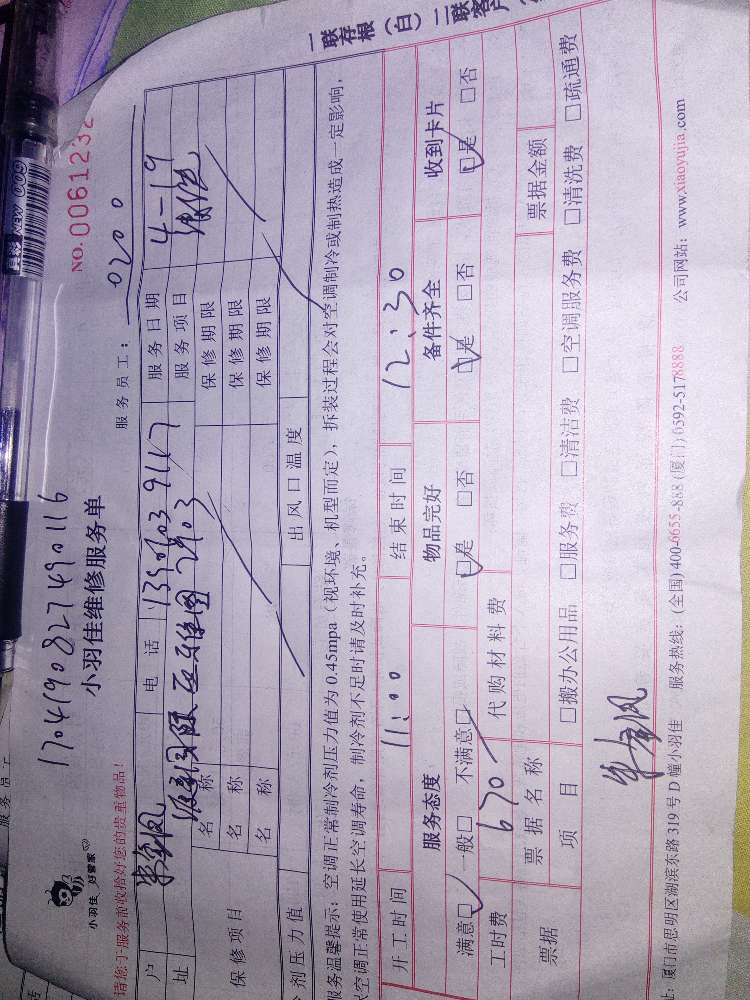 一联存根（白）二联客户
NO. 0061232
1704190827490116
小羽佳维修服务单
小羽佳 好管家
服务员工：0200
请您于服务前收拾好您的贵重物品！
户 电话 139603 9117 服务日期 4-19
址 国际 2403 服务项目
保修项目 名称 保修期限
名称 保修期限
名称 保修期限
剂压力值 出风口温度
服务温馨提示：空调正常制冷剂压力值为0.45mpa（视环境、机型而定），拆装过程会对空调制冷或制热造成一定影响，
空调正常使用延长空调寿命，制冷剂不足时请及时补充。
开工时间 11:00 结束时间 12:30
服务态度 物品完好 备件齐全 收到卡片
满意□ 一般□ 不满意□ □是 □否 □是 □否 □是 □否
工时费 670 代购材料费
票据 票据名称 票据金额
项目 □搬办公用品 □服务费 □清洁费 □空调服务费 □清洗费 □疏通费
址：厦门市思明区湖滨东路319号D幢小羽佳 服务热线：(全国)400-6655-888 (厦门)0592-5178888 公司网站：www.xiaoyujia.com